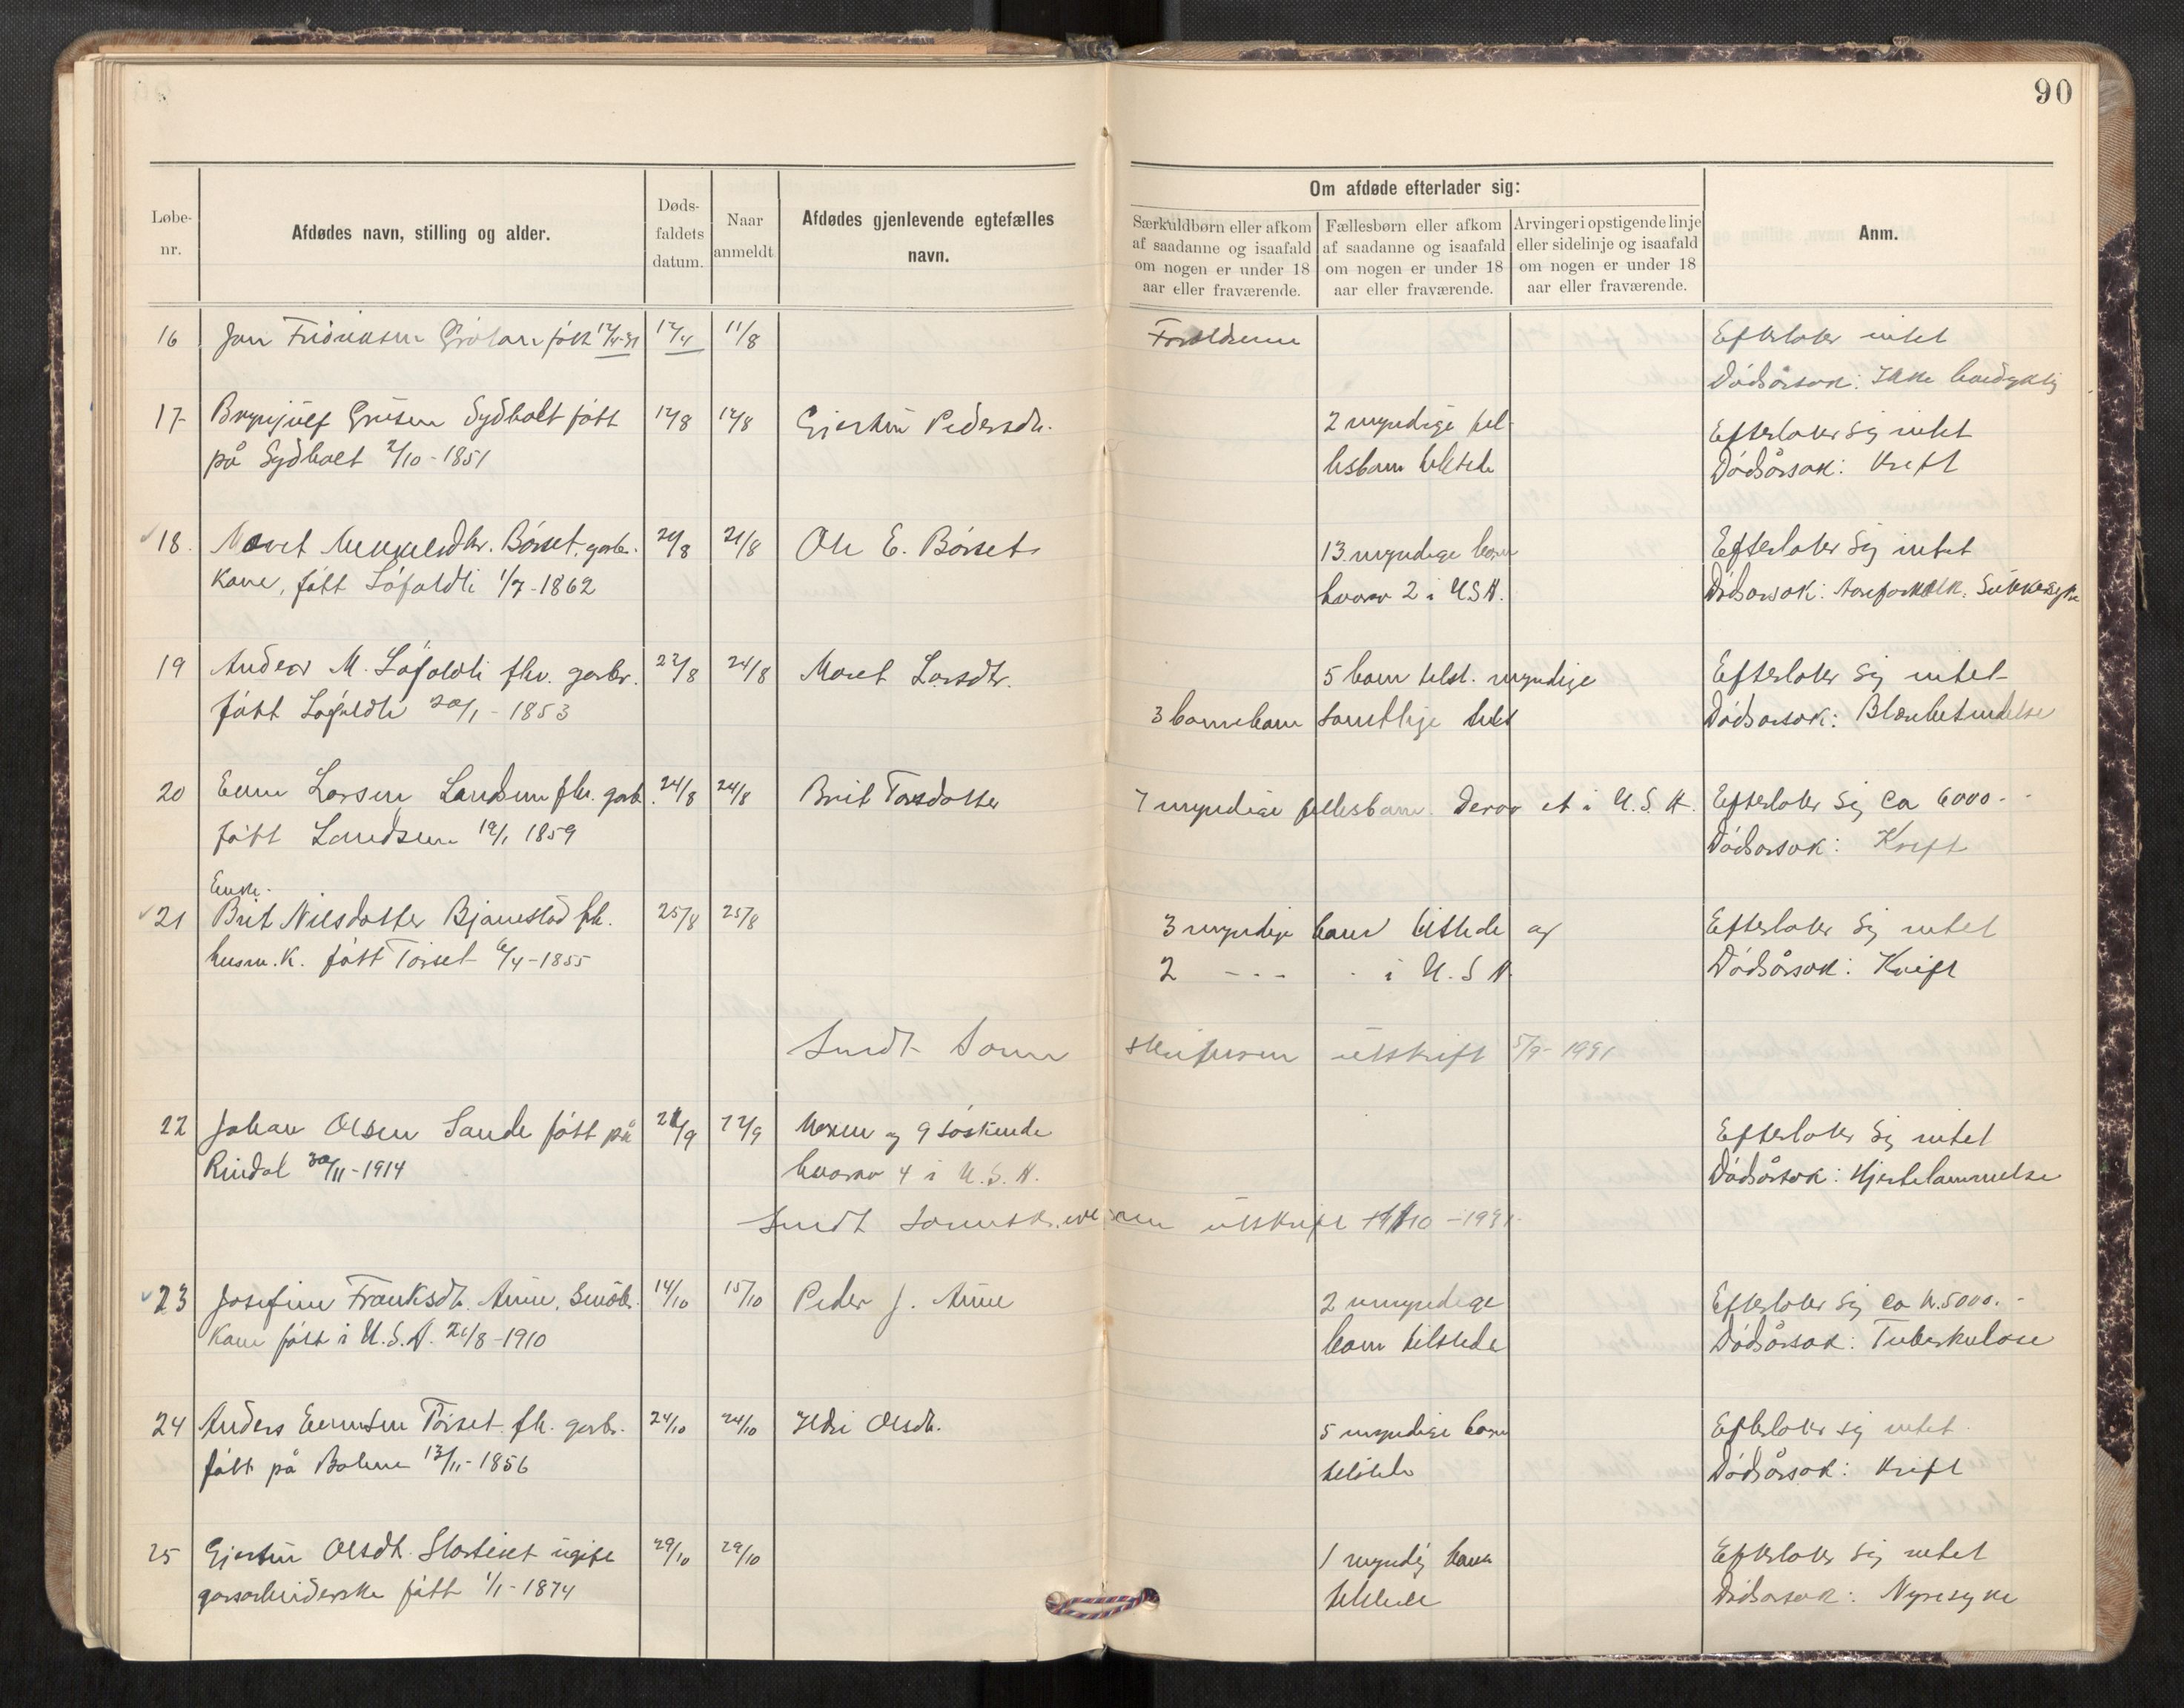 90
Løbe-
nr.
Afdødes navn, stilling og alder.
Døds-
faldets
datum.
Naar
anmeldt
Afdødes gjenlevende egtefælles
navn.
Om afdøde efterlader sig:
Særkuldbørn eller afkom
af saadanne og isaafald
om nogen er under 18
aar eller fraværende.
Fællesbørn eller afkom
af saadanne og isaafald
om nogen er under 18
aar eller fraværende.
Arvinger i opstigende linje
eller sidelinje og isaafald
om nogen er under 18
aar eller fraværende.
Anm.
16 Jon Fredriksen født 11/8 Foreldrene Efterlater intet
Dødsårsak: Ikke
17 Brynjulf Sydhalt født 12/8 12/8 Gjertin Pedersdtr. 2 myndige fel-
på Sydhalt 2/10-1851 lesbarn tilstede
Efterlater sig intet
Dødsårsak: Kreft
18 Marit Børset, garbr. 20/8 21/8 Ole E. Børset 13 myndige barn Efterlater sig intet
Kone, født Løfaldli 1/7-1862 hvorav 2 i USA. Dødsårsak: Sukkersyke
19 Anders M. Løfaldli fhv. garbr. 22/8 24/8 Maret Larsdtr. 5 barn tilst. myndige Efterlater sig intet
født Løfaldli 20/1-1853 3 barnebarn samtlige tilst Dødsårsak: Blærebetendelse
20 Einn Larsen Landsem fhv. garb. 24/8 24/8 Brit Torsdatter 7 myndige fellesbarn. Derav et i U.S.A. Efterlater sig ca 6000.-
født Landsem 19/1 1859 Dødsårsak: Kreft
Enke.
21 Brit Nilsdatter Bjørnestad fh. 25/8 25/8 3 myndige barn tilstede og Efterlater sig intet
husm.k. født Torset 6/4-1855 2 - - - - i U.S.A. Dødsårsak: Kreft
Sendt Sorenskriveren utskrift 5/9-1931
22 Johan Olsen Sande født på 21/9 22/9 Moren og 9 søskende Efterlater sig intet
Rindal 30/11-1914 hvorav 4 i U.S.A. Dødsårsak: Hjertelammelse
Sendt Sorenskriveren utskrift 10-1931
23 Josefine Franksdtr. Aune, Småbr. 14/10 15/10 Peder J. Aune 2 umyndige Efterlater sig ca k. 5000.-
Kone født i U.S.A. 21/8-1910 barn tilstede Dødsårsak: Tuberkulose
24 Anders Einumsen Tørset fh. garbr. 24/10 24/10 Ildri Olsdtr. 5 myndige barn Efterlater sig intet
født på Bolme 13/11-1856 tilstede Dødsårsak: Kreft
25 Gjertin Olsdtr. ugift 29/10 29/10 1 myndig barn Efterlater sig intet
garsarbeiderske født 1/1-1874 tilstede Dødsårsak: Nyresyke